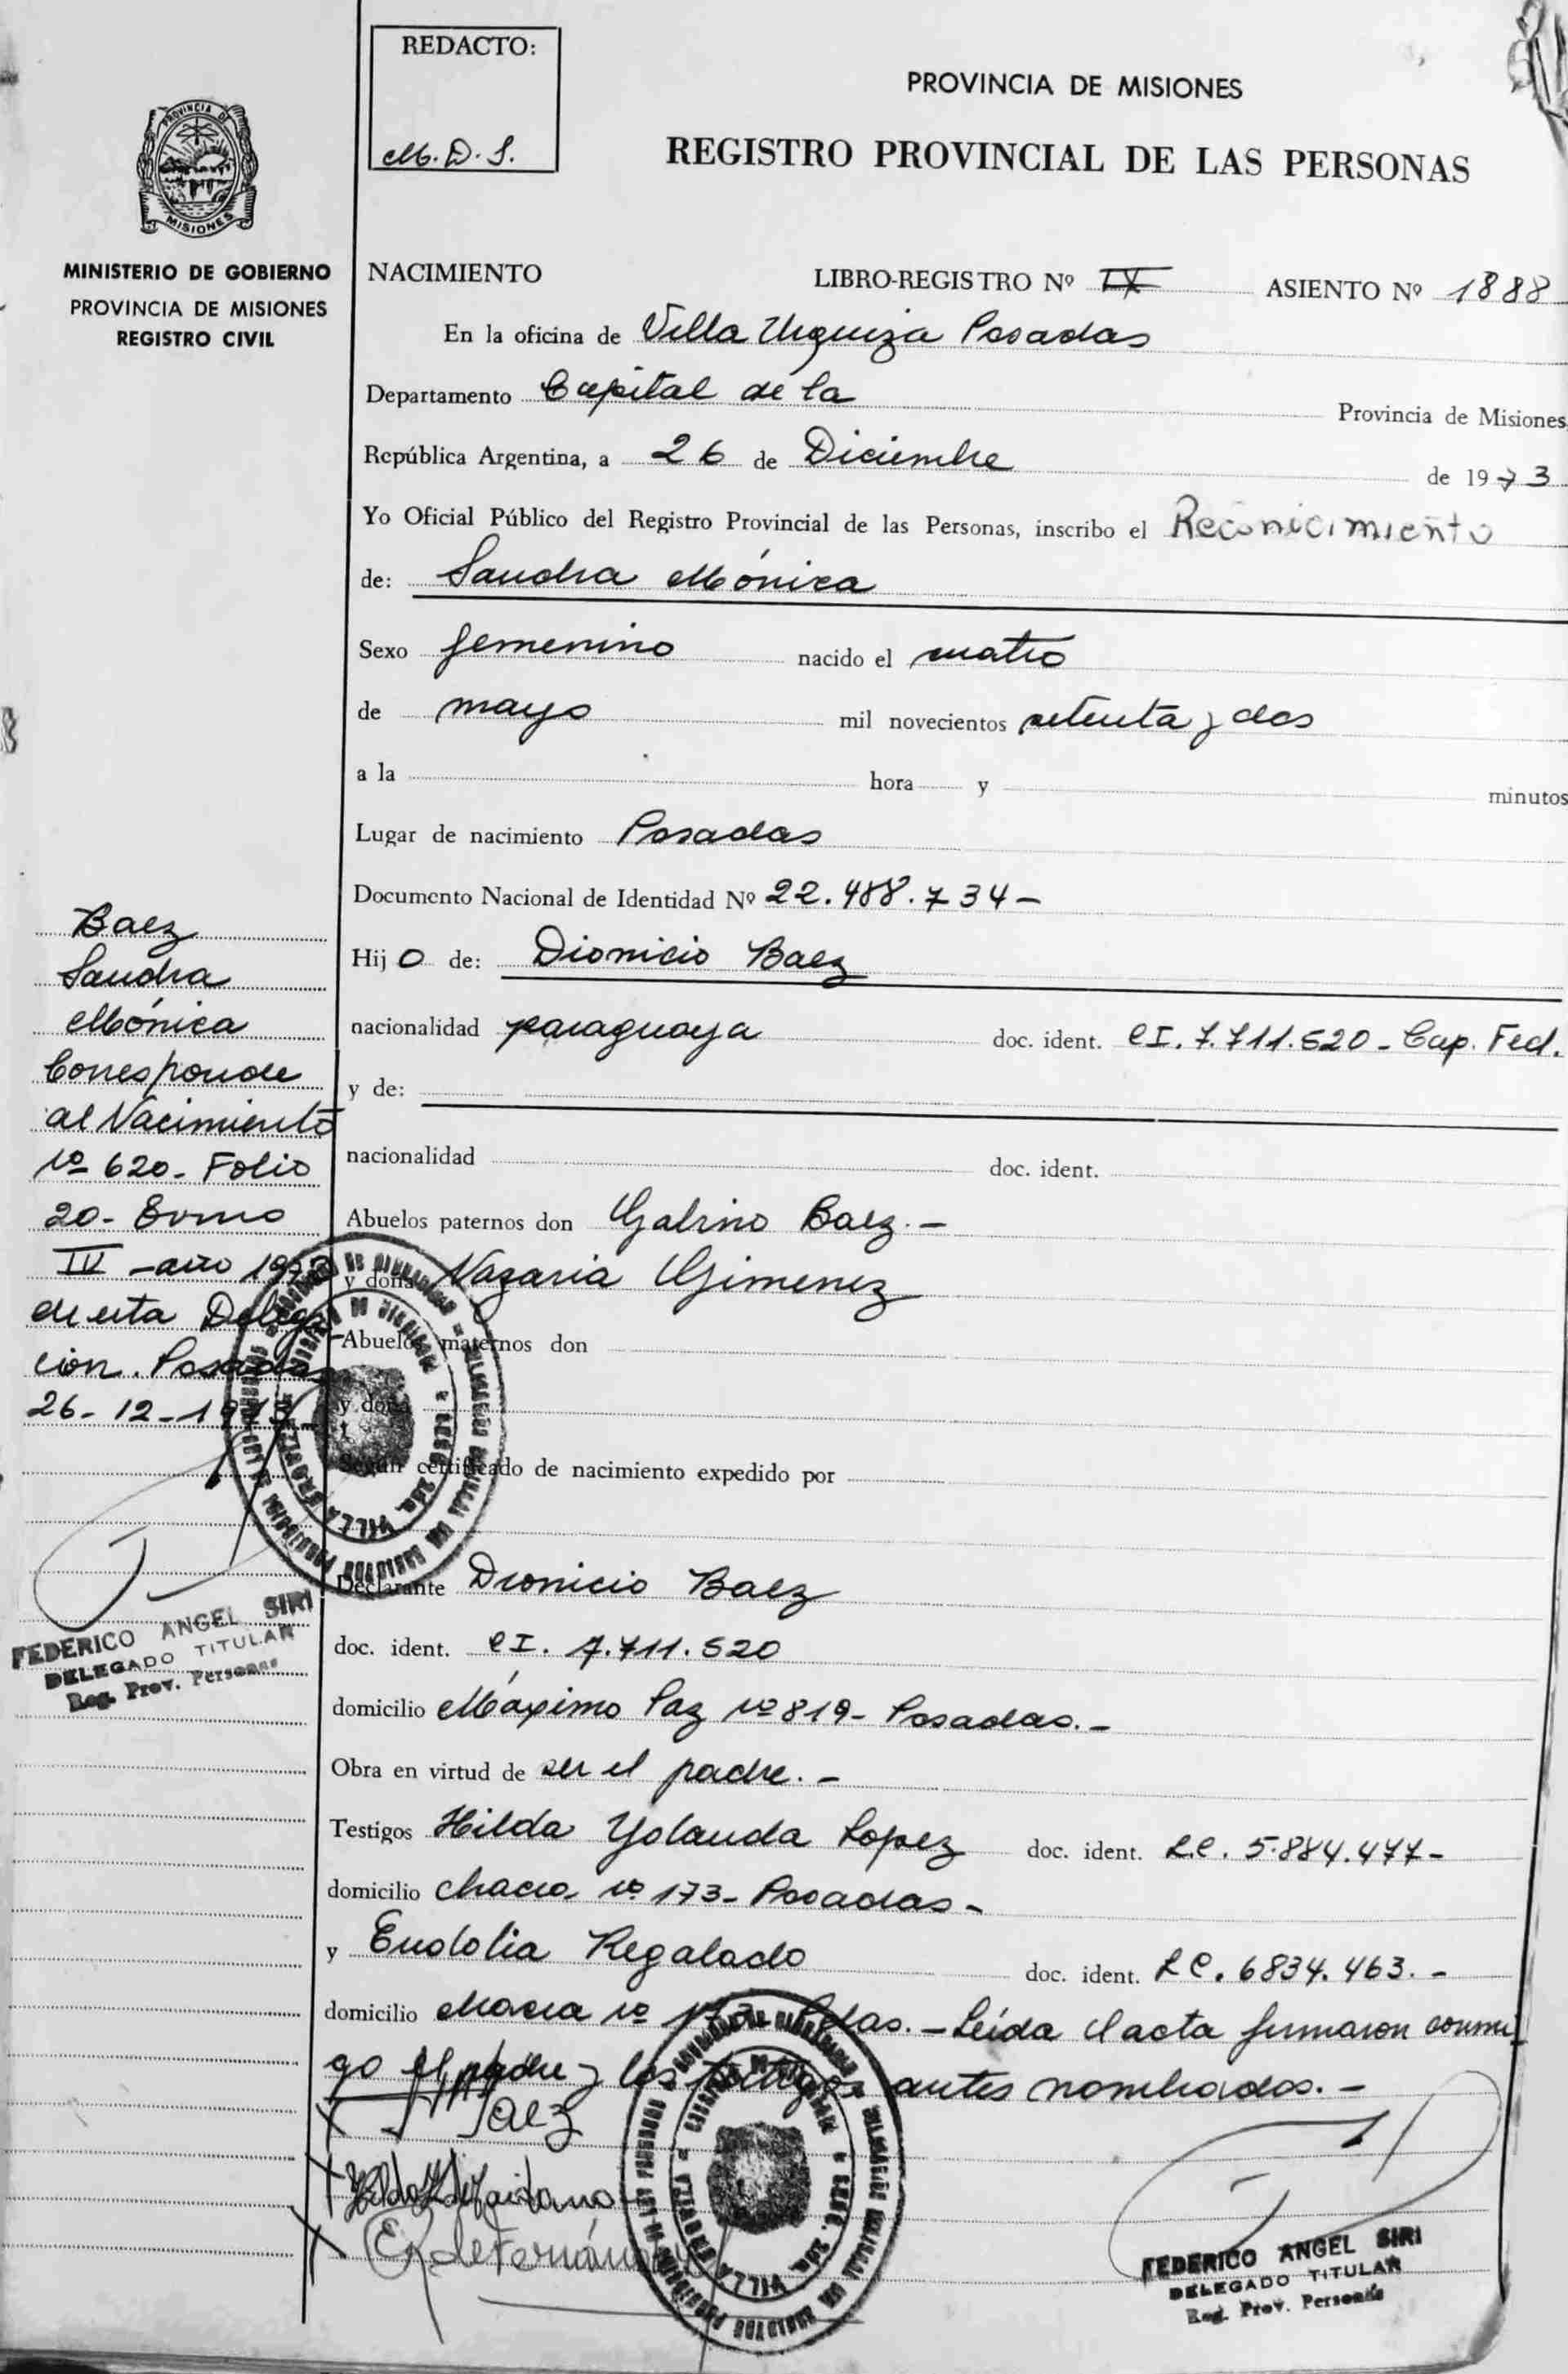 REDACTO:
M. D. S.
PROVINCIA DE MISIONES
REGISTRO PROVINCIAL DE LAS PERSONAS
PROVINCIA DE
MISIONES
MINISTERIO DE GOBIERNO
PROVINCIA DE MISIONES
REGISTRO CIVIL
NACIMIENTO LIBRO-REGISTRO Nº IX ASIENTO Nº 1888
En la oficina de Villa Urquiza Posadas
Departamento Capital de la Provincia de Misiones,
República Argentina, a 26 de Diciembre de 1973
Yo Oficial Público del Registro Provincial de las Personas, inscribo el Reconicimiento
de: Sandra Mónica
Sexo femenino nacido el cuatro
de mayo mil novecientos setenta y dos
a la hora y minutos
Lugar de nacimiento Posadas
Documento Nacional de Identidad Nº 22.488.734-
Hijo de: Dionicio Baez
nacionalidad paraguaya doc. ident. CI. 7.711.520 - Cap. Fed.
y de:
nacionalidad doc. ident.
Abuelos paternos don Galino Baez. -
y doña Nazaria Gimenez
Abuelos maternos don
y doña
Según certificado de nacimiento expedido por
Declarante Dionicio Baez
doc. ident. CI. 7.711.520
domicilio Máximo Paz nº 819 - Posadas. -
Obra en virtud de ser el padre. -
Testigos Hilda Yolanda Lopez doc. ident. L.C. 5.884.477-
domicilio Chacra nº 173 - Posadas -
y Eudolia Regalado doc. ident. L C. 6834.463. -
domicilio Chacra nº 173 - Pdas. - Leída el acta firmaron conmi
go el padre y los testigos antes nombrados. -
Baez
Baez
Sandra
Mónica
Corresponde
al Nacimiento
nº 620 - Folio
20 - Tomo
IV - año 1972
de esta Delega
ción. Posadas
26 - 12 - 1973
FEDERICO ANGEL SIRI
DELEGADO TITULAR
Reg. Prov. Personas
FEDERICO ANGEL SIRI
DELEGADO TITULAR
Reg. Prov. Personas